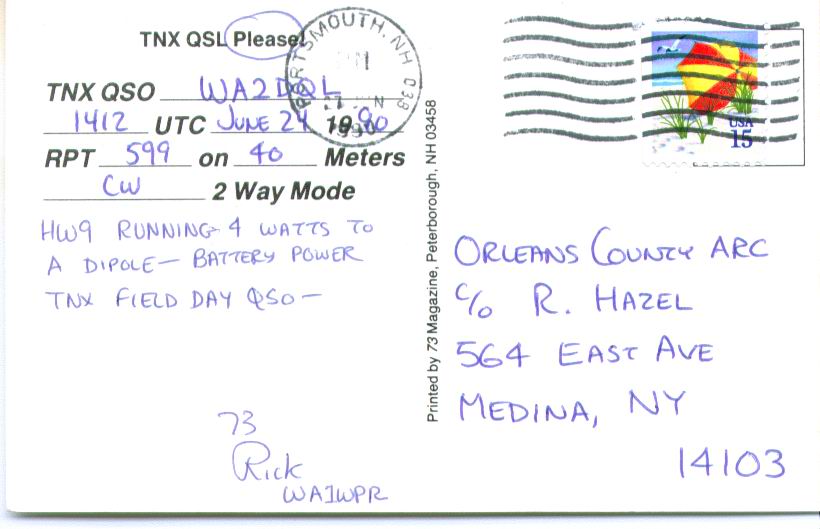 TNX QSL Please!
TNX QSO WA2DQL
1412 UTC JUNE 24 1990
RPT 599 on 40 Meters
CW 2 Way Mode
HW9 RUNNING 4 WATTS TO
A DIPOLE — BATTERY POWER
TNX FIELD DAY QSO —
73
Rick
WA1WPR
Printed by 73 Magazine, Peterborough, NH 03458
PORTSMOUTH, NH 038
1990
USA
15
ORLEANS COUNTY ARC
c/o R. HAZEL
564 EAST AVE
MEDINA, NY
14103